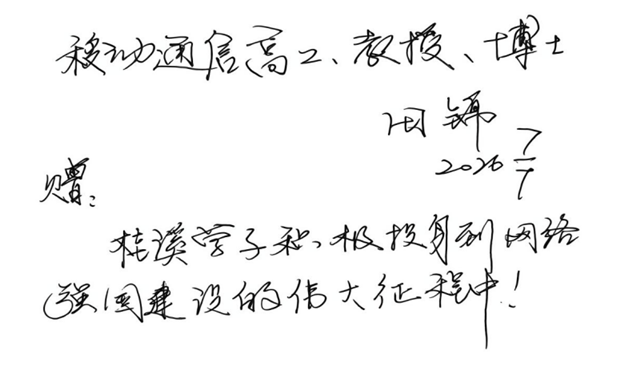 移动通信高工、教授、博士
田锦
2026 7/7
赠:
桂溪学子积极投身到网络
强国建设的伟大征程中!